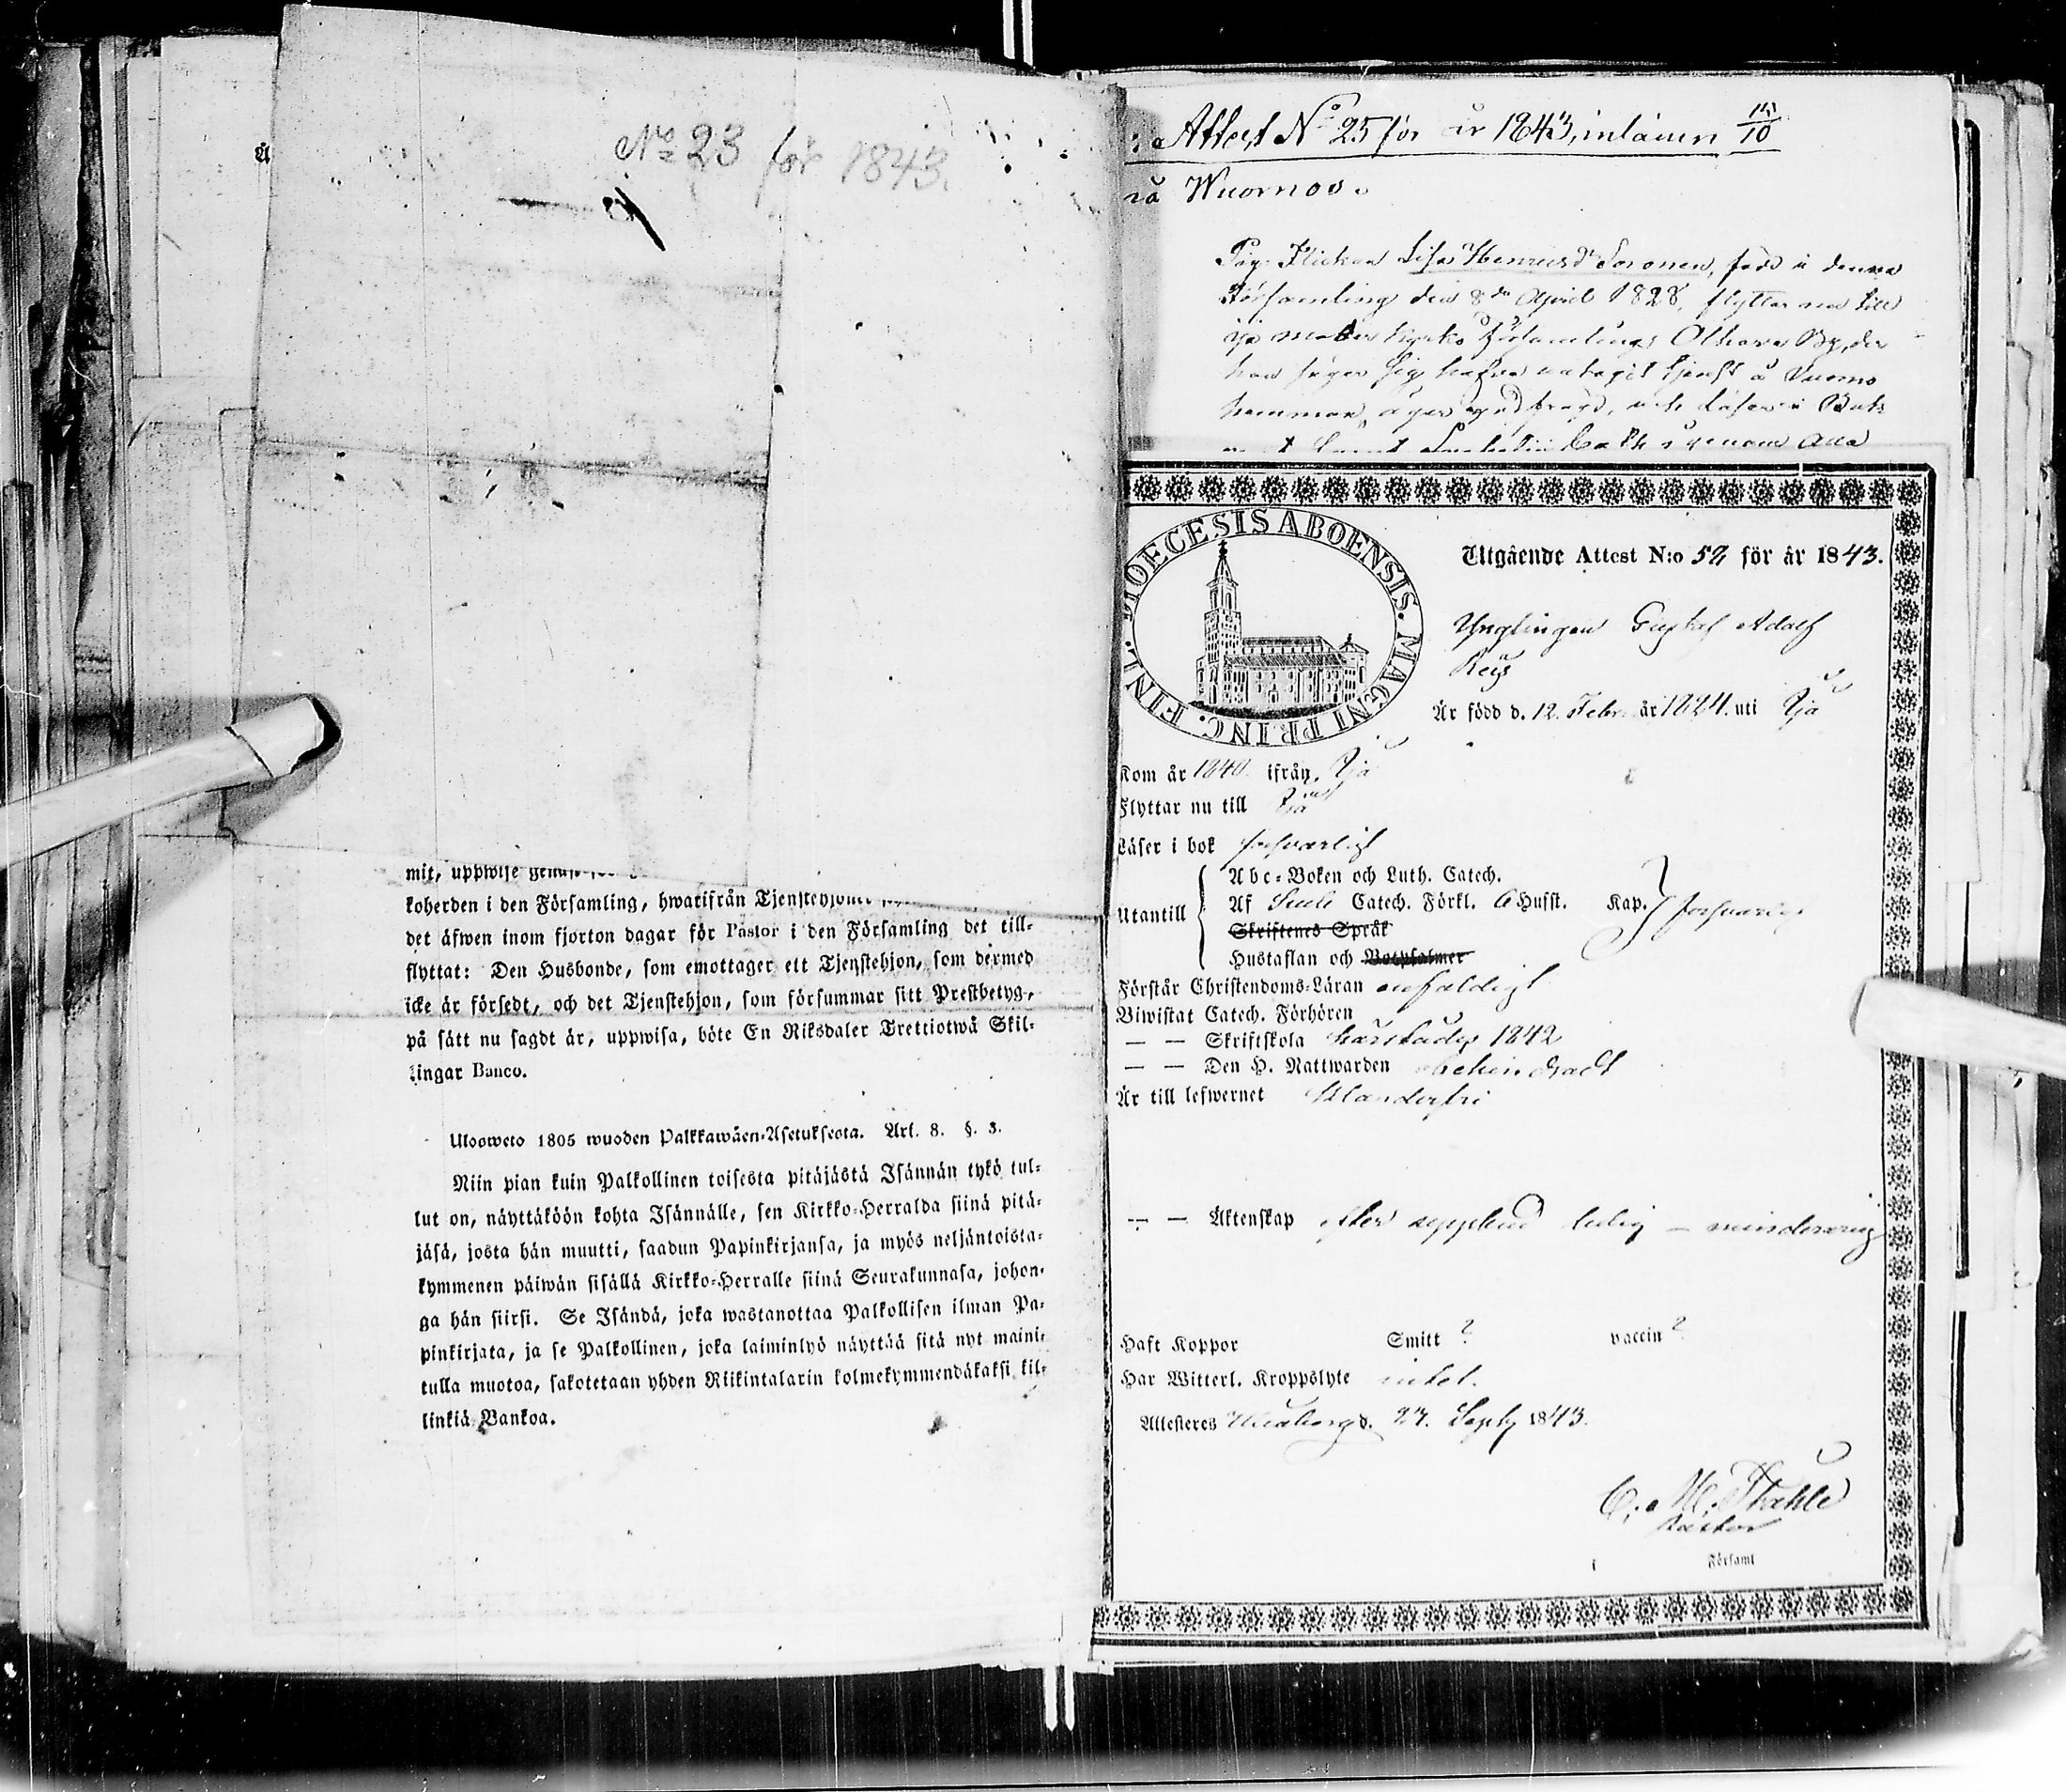 No 23 för 1843.
koherden i den Församling, hwarifrån
det äfwen inom fjorton dagar för Pastor i den Församling det till-
flyttat: Den Husbonde, som emottager ett Tjenstehjon, som dermed
icke är försedt, och det Tjenstehjon, som försummar sitt Prestbetyg,
på sätt nu sagdt är, uppwisa, böte En Riksdaler Trettiotwå Skil-
lingar Banco.
Ulosweto 1805 wuoden Palkkawäen-Asetuksesta. Art. 8. §. 3.
Niin pian kuin Palkollinen toisesta pitäjästä Isännän tykö tul-
lut on, näyttäköön kohta Isännälle, sen Kirkko-Herralda siinä pitä-
jäsä, josta hän muutti, saadun Papinkirjansa, ja myös neljäntoista-
kymmenen päiwän sisällä Kirkko-Herralle siinä Seurakunnasa, johon-
ga hän siirsi. Se Isändä, joka wastanottaa Palkollisen ilman Pa-
pinkirjata, ja se Palkollinen, joka laiminlyö näyttää sitä nyt maini-
tulla muotoa, sakotetaan yhden Riikintalarin kolmekymmendäkaksi kil-
linkiä Bankoa.
Attest No 25 för år 1843, inlämn 15/10
Wuornos.
Pig. Flickan Lisa Henriksdr Soronen, född i denna
Församling den 8de April 1828, flyttar nu till
Ijo moder kyrko Församlings Olhava By, der
hon säger sig hafva antagit tjenst å Vuorno
hemman, äger god frägd, och läser i Bok
DIOECESIS ABOENSIS. MAGNI PRINC. FINL.
Utgående Attest N:o 52 för år 1843.
Ynglingen Gustaf Adolf
Reys
Är född d. 12. Febr. år 1824. uti Ijå
Kom år 1840. ifrån Ijå
Flyttar nu till Ijå
Läser i bok försvarligt
Utantill
Abc-Boken och Luth. Catech.
Af Catech. Förkl. 6 Hufst. Kap. försvarligt
Skriftenes Språk
Hustaflan och Botpsalmer
Förstår Christendoms-Läran enfaldigt
Biwistat Catech. Förhören
— — Skriftskola härstädes 1842
— — Den H. Nattwarden obehindradt
Är till lefwernet Klanderfri
— — Äktenskap efter upplyst ledig – minderårig
Haft Koppor Smitt ? vaccin ?
Har Witterl. Kroppslyte intet.
Attesteres Uleåborg d. 27. Sept. 1843.
C. M. Ståhle
Pastor
Församl